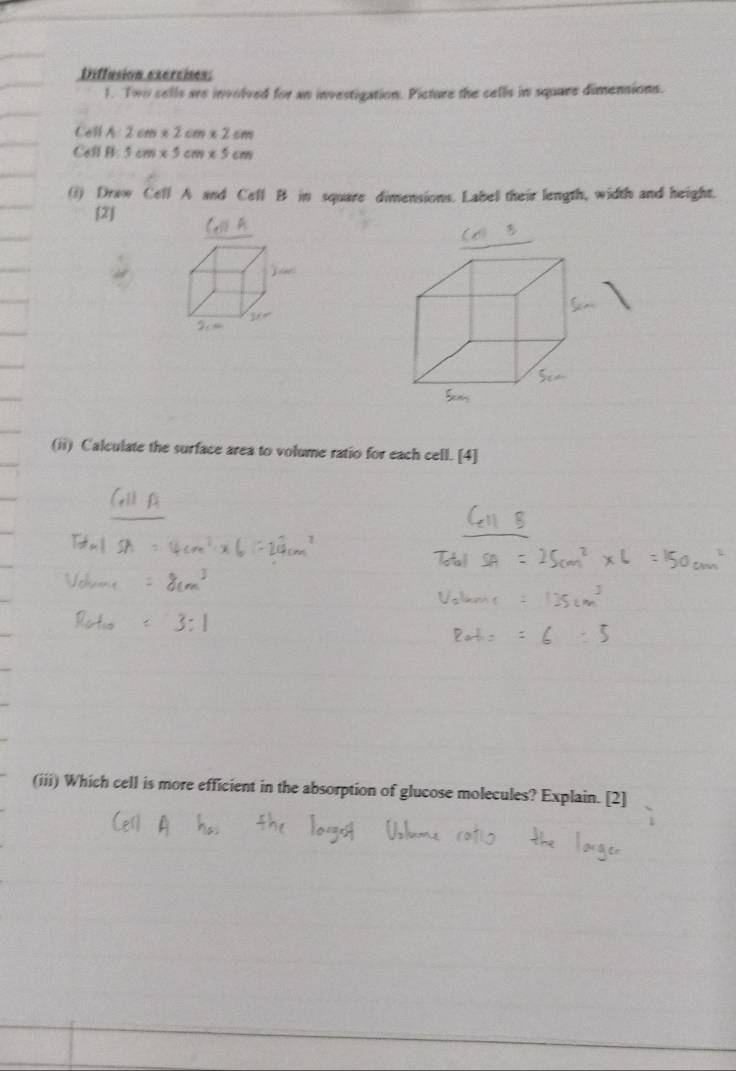 Diffusion exercises:
1. Two cells are involved for an investigation. Picture the cells in square dimensions.
Cell A: 2 cm x 2 cm x 2 cm
Cell B: 5 cm x 5 cm x 5 cm
(i) Draw Cell A and Cell B in square dimensions. Label their length, width and height.
[2]
Cell A
Cell B
5cm
2cm
5cm
5cm
(ii) Calculate the surface area to volume ratio for each cell. [4]
Cell A
Cell B
Total SA = 4cm² x 6 = 24cm²
Total SA = 25cm² x 6 = 150cm²
Volume = 8cm³
Volume = 125cm³
Ratio = 3:1
Ratio = 6 : 5
(iii) Which cell is more efficient in the absorption of glucose molecules? Explain. [2]
Cell A has the largest Volume ratio the larger